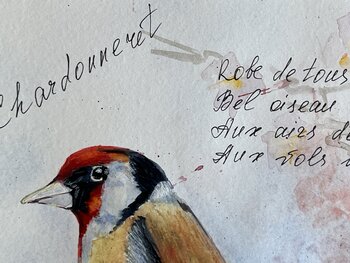 Chardonneret
Robe de tous
Bel oiseau
Aux airs d
Aux vols